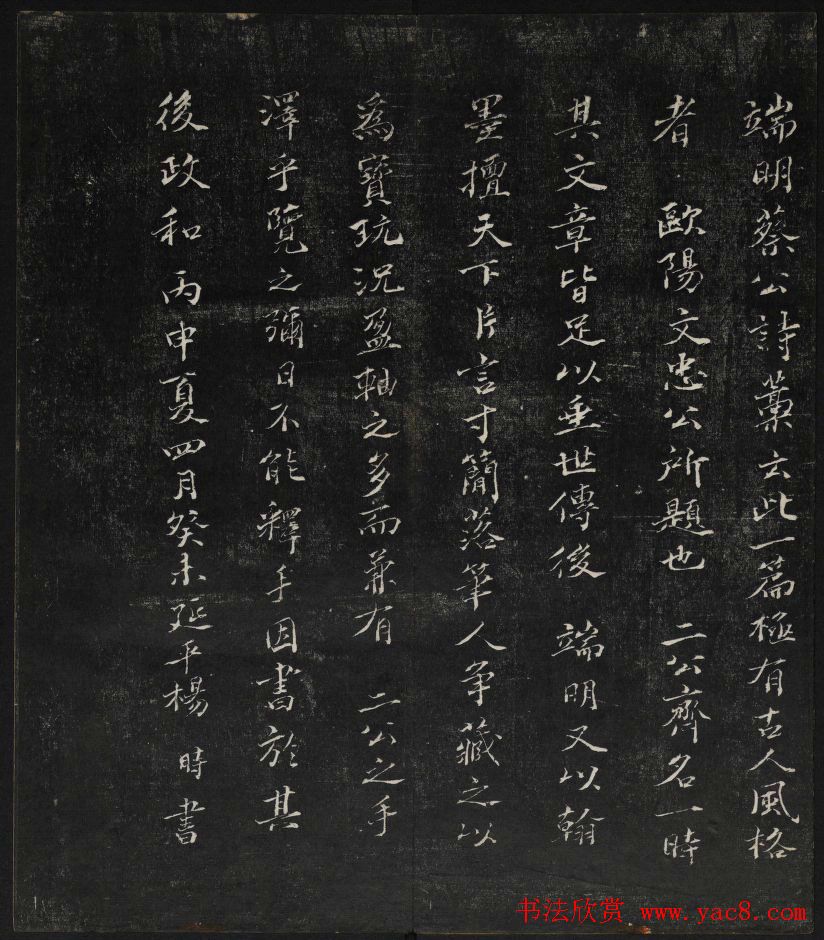 端明蔡公詩藁云此一篇極有古人風格
者 歐陽文忠公所題也 二公齊名一時
其文章皆足以垂世傳後 端明又以翰
墨擅天下片言寸簡落筆人争藏之以
為寳玩況盈軸之多而兼有 二公之手
澤乎覽之彌日不能釋手因書於其
後政和丙申夏四月癸未延平楊 時書
书法欣赏 www.yac8.com